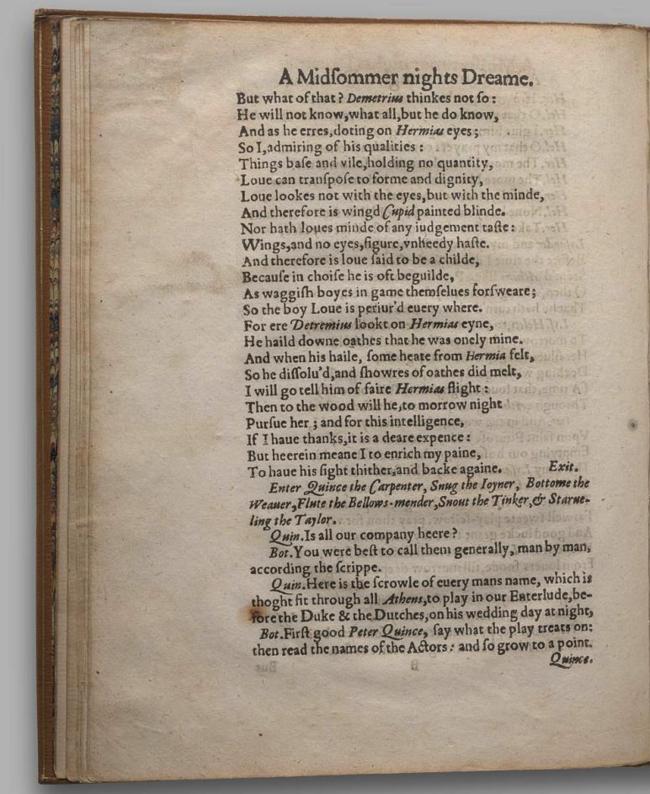 A Midſommer nights Dreame.
But what of that? Demetrius thinkes not ſo:
He will not know, what all, but he do know,
And as he erres, doting on Hermias eyes;
So I, admiring of his qualities:
Things baſe and vile, holding no quantity,
Loue can tranſpoſe to forme and dignity,
Loue lookes not with the eyes, but with the minde,
And therefore is wingd Cupid painted blinde.
Nor hath loues minde of any iudgement taſte:
Wings, and no eyes, figure, vnheedy haſte.
And therefore is loue ſaid to be a childe,
Becauſe in choiſe he is oft beguilde,
As waggiſh boyes in game themſelues forſweare;
So the boy Loue is periur'd euery where.
For ere Detremius lookt on Hermias eyne,
He haild downe oathes that he was onely mine.
And when his haile, ſome heate from Hermia felt,
So he diſſolu'd, and ſhowres of oathes did melt,
I will go tell him of faire Hermias flight:
Then to the wood will he, to morrow night
Purſue her; and for this intelligence,
If I haue thanks, it is a deare expence:
But heerein meane I to enrich my paine,
To haue his ſight thither, and backe againe. Exit.
Enter Quince the Carpenter, Snug the Ioyner, Bottome the
Weauer, Flute the Bellows-mender, Snout the Tinker, & Starue-
ling the Taylor.
Quin. Is all our company heere?
Bot. You were beſt to call them generally, man by man,
according the ſcrippe.
Quin. Here is the ſcrowle of euery mans name, which is
thoght fit through all Athens, to play in our Enterlude, be-
fore the Duke & the Dutches, on his wedding day at night,
Bot. Firſt good Peter Quince, ſay what the play treats on:
then read the names of the Actors: and ſo grow to a point.
Quince.